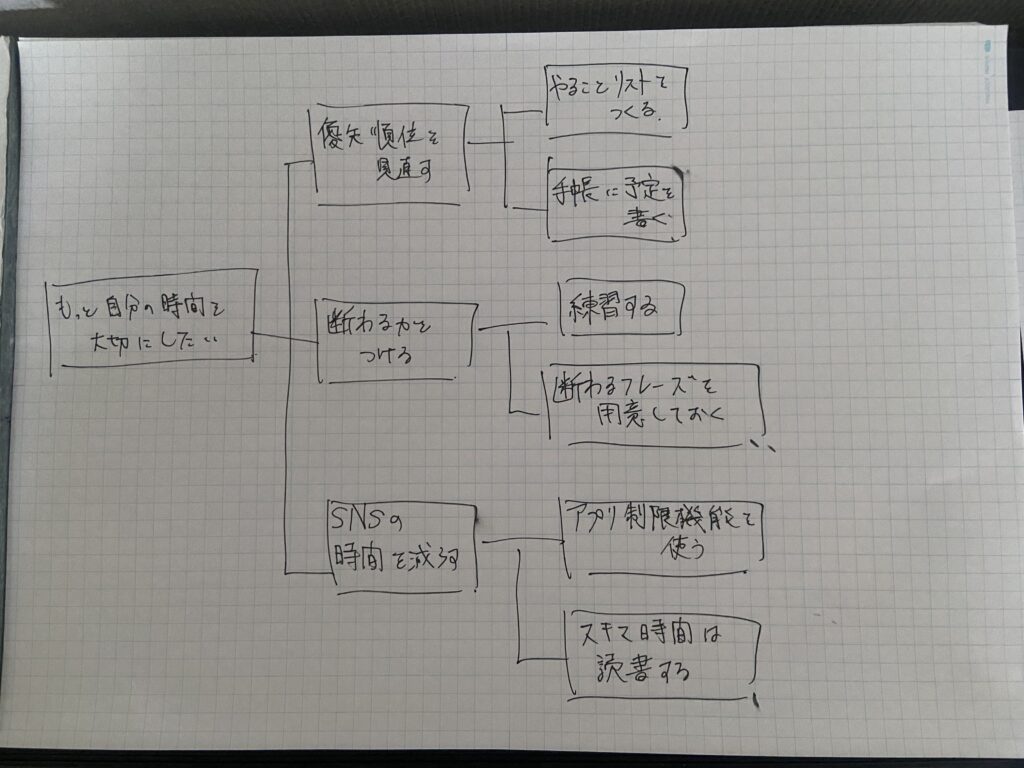 もっと自分の時間を
大切にしたい
優先順位を
見直す
やることリストを
つくる.
手帳に予定を
書く
断わる力を
つける
練習する
断わるフレーズを
用意しておく
SNSの
時間を減らす
アプリ制限機能を
使う
スキマ時間は
読書する